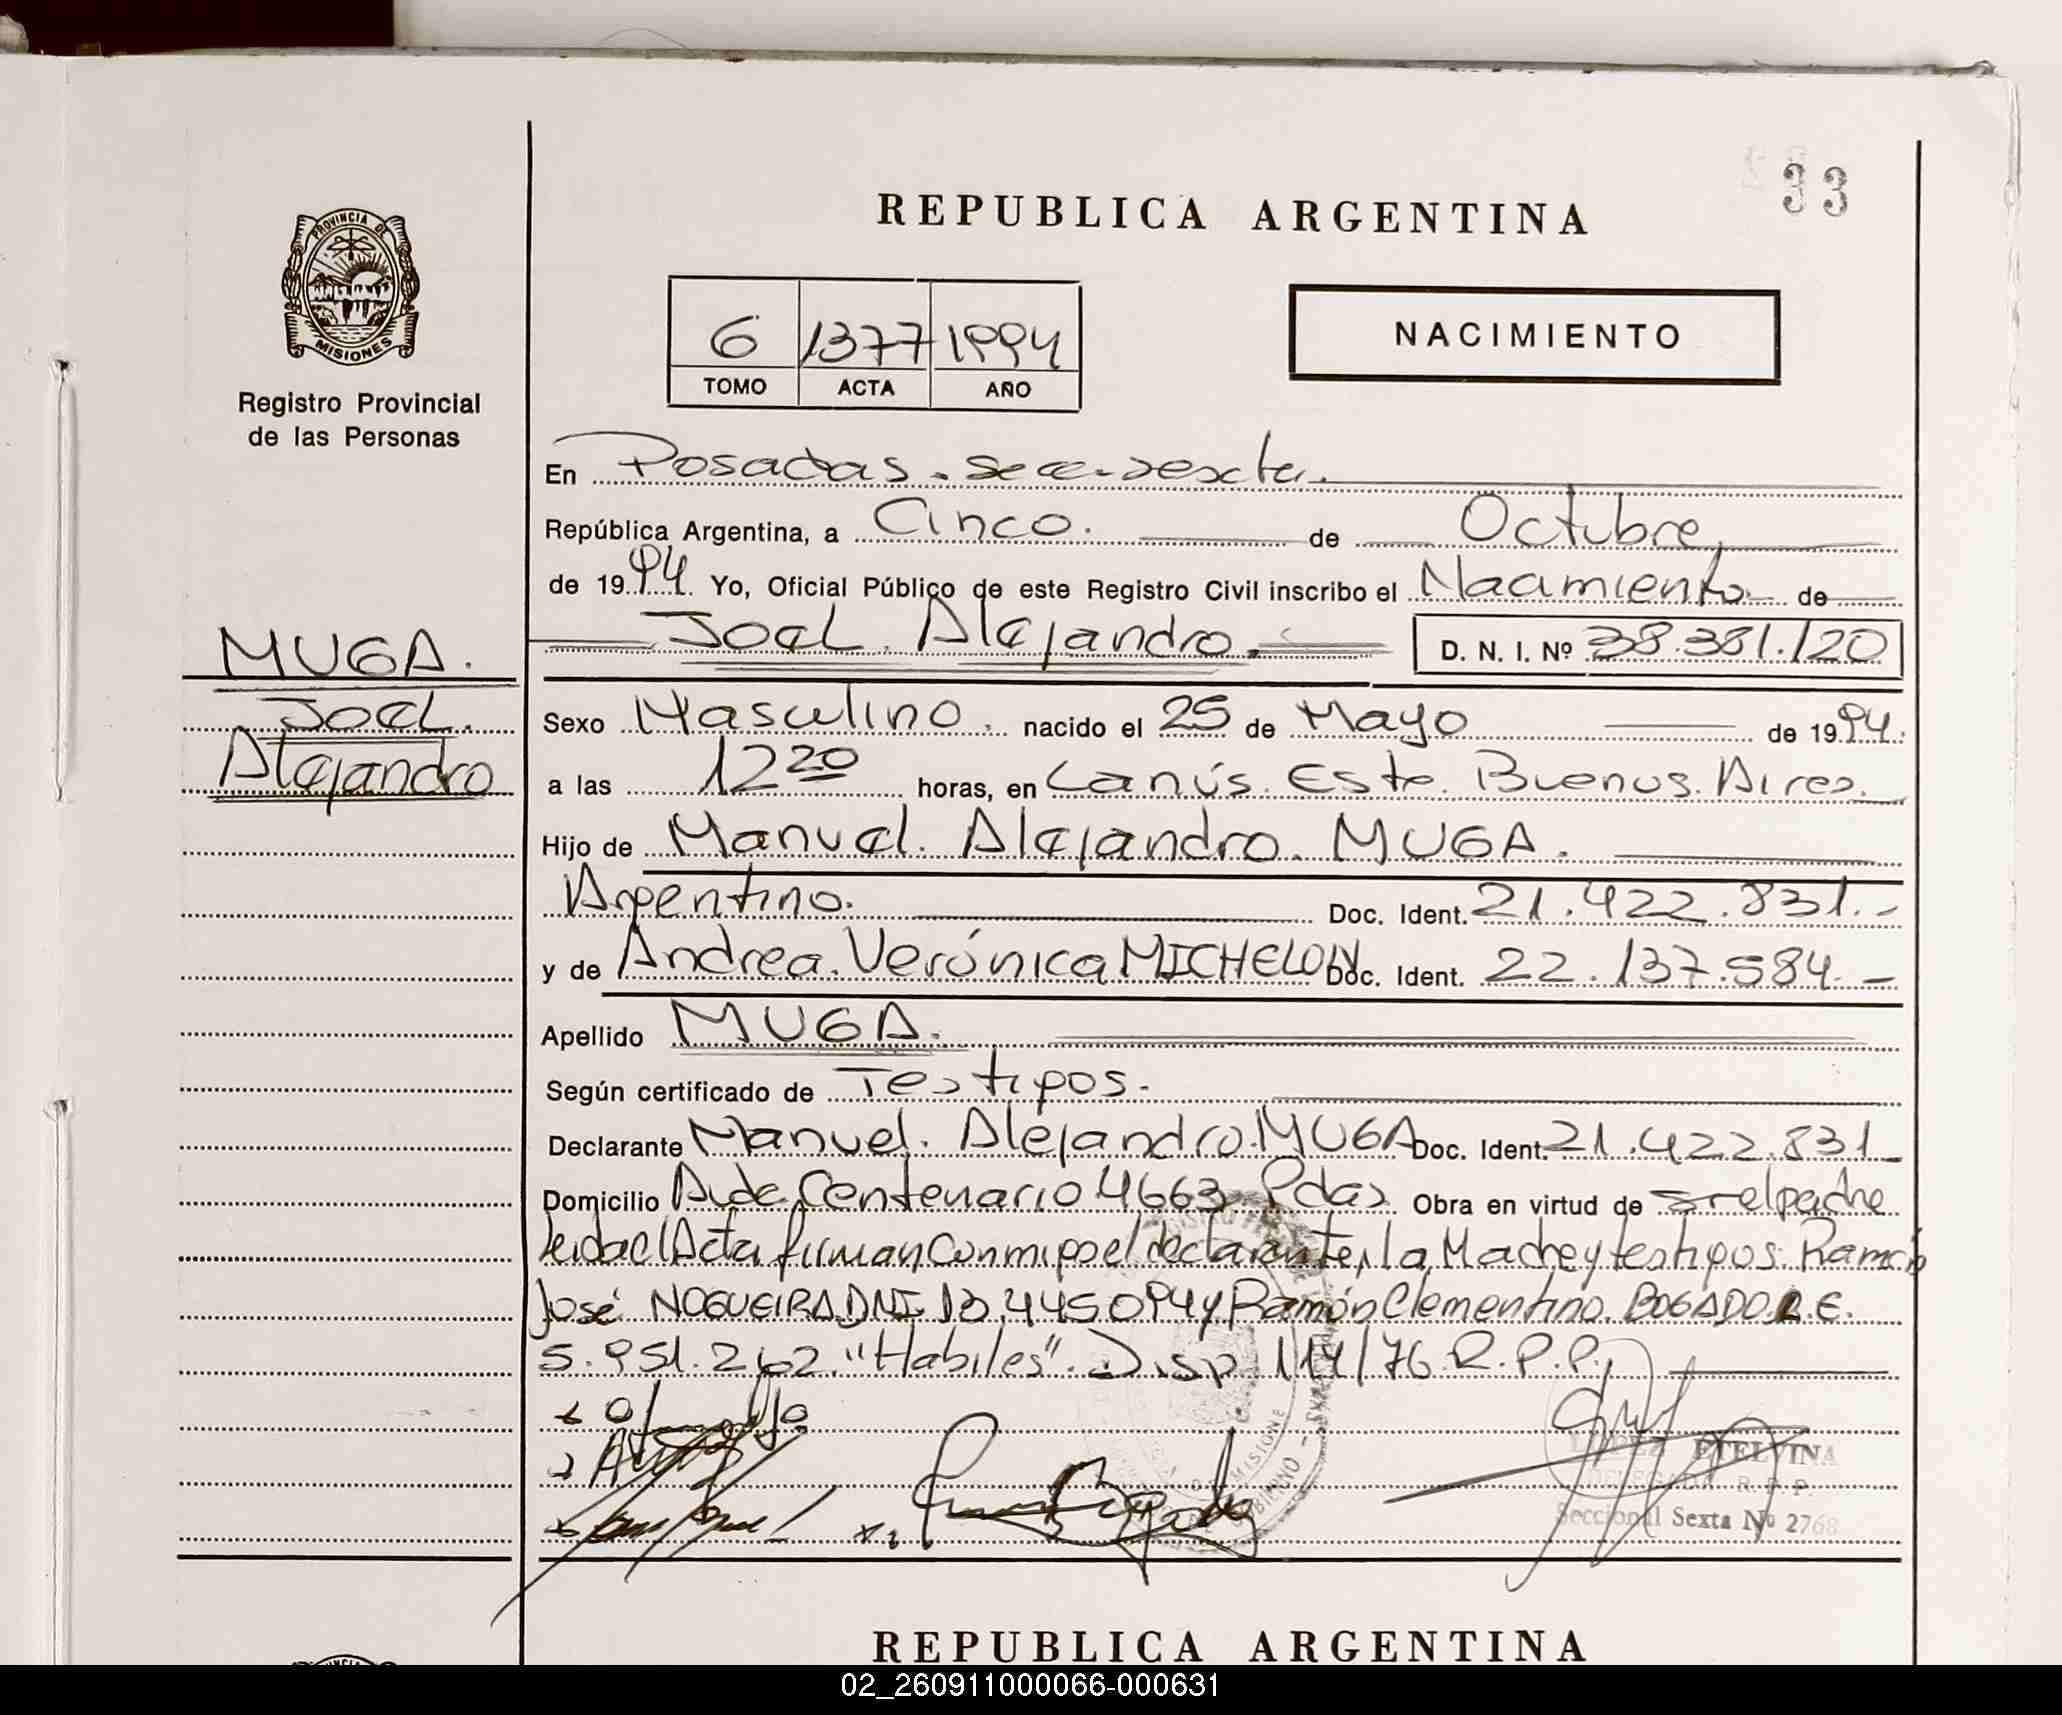 33
REPUBLICA ARGENTINA
PROVINCIA DE
MISIONES
Registro Provincial
de las Personas
6 1377 1994
TOMO ACTA AÑO
NACIMIENTO
En Posadas. Secc. sexta.
República Argentina, a Cinco. de Octubre,
de 1994. Yo, Oficial Público de este Registro Civil inscribo el Nacimiento de
Joel. Alejandro. D. N. I. Nº 38.381.120
MUGA.
Joel.
Alejandro
Sexo Masculino. nacido el 25 de Mayo de 1994.
a las 12 20 horas, en Lanús. Este. Buenos. Aires.
Hijo de Manuel. Alejandro. MUGA.
Argentino. Doc. Ident. 21.422.831.-
y de Andrea. Verónica MICHELON Doc. Ident. 22.137.584.-
Apellido MUGA.
Según certificado de Testigos.
Declarante Manuel. Alejandro. MUGA Doc. Ident. 21.422.831
Domicilio Avda. Centenario 4663 Pdas. Obra en virtud de ser el padre
leida el Acta firman conmigo el declarante, la Madre y testigos. Ramón
José NOGUEIRA. DNI. 13.445094 y Ramón Clementino. BOGADO. L. E.
5.951.262 "Habiles". Disp. 114/76. R. P. P.,
ETELVINA
DELEGADA R. P. P.
Seccional Sexta Nº 2768
REPUBLICA ARGENTINA
02_260911000066-000631